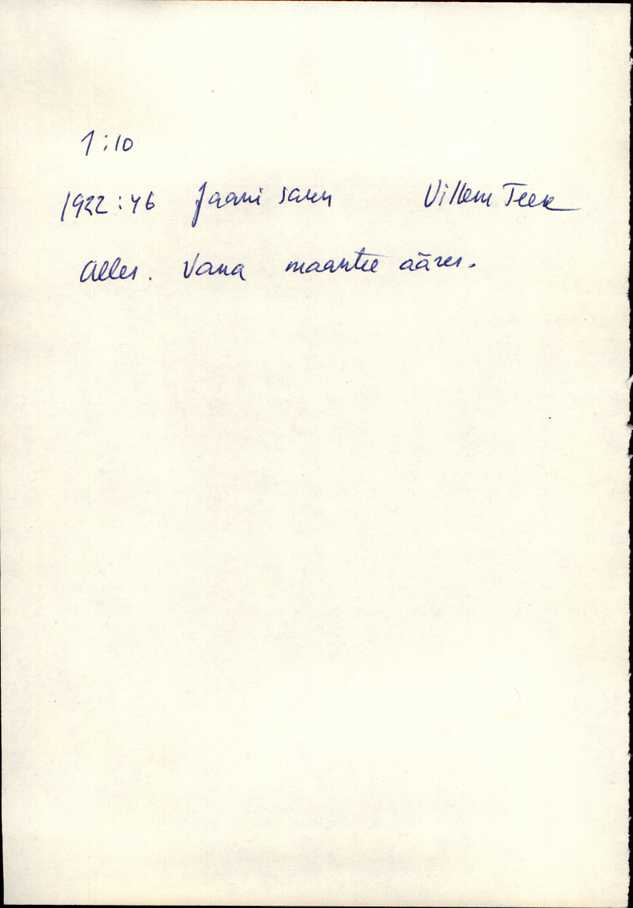 1:10
1922:46 Jaani saun Villem Teek
Alles. Vana maantee ääres.